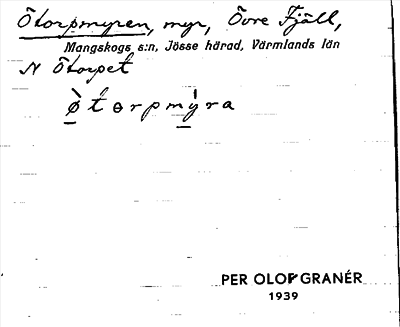 Ötorpmyren, myr, Övre Fjäll,
Mangskogs s:n, Jösse härad, Värmlands län
N Ötorpet
ø̀tɵrpmýra
PER OLOF GRANÉR
1939